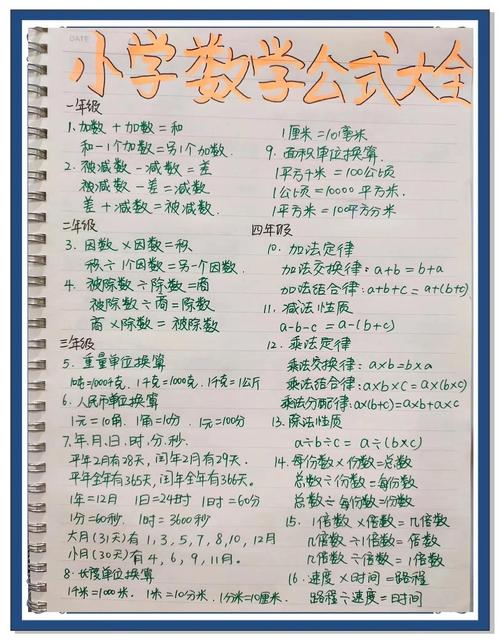 DATE
小学数学公式大全
一年级
1.加数 + 加数 = 和
和 - 1个加数 = 另1个加数.
2. 被减数 - 减数 = 差
被减数 - 差 = 减数
差 + 减数 = 被减数.
二年级
3. 因数 × 因数 = 积
积 ÷ 1个因数 = 另一个因数.
4. 被除数 ÷ 除数 = 商
被除数 ÷ 商 = 除数
商 × 除数 = 被除数
三年级
5. 重量单位换算
1吨=1000千克. 1千克=1000克. 1千克=1公斤
6. 人民币单位换算
1元=10角. 1角=10分. 1元=100分
7.年.月.日.时.分.秒.
平年2月有28天, 闰年2月有29天.
平年全年有365天, 闰年全年有366天.
1年=12月 1日=24时 1时=60分
1分=60秒. 1时=3600秒
大月(31天)有 1, 3, 5, 7, 8, 10, 12月
小月(30天)有 4, 6, 9, 11月.
8. 长度单位换算
1千米=1000米. 1米=10分米. 1分米=10厘米.
1厘米=10毫米
9. 面积单位换算.
1平方千米=100公顷
1公顷=10000平方米.
1平方米=100平方分米
四年级
10. 加法定律
加法交换律: a+b=b+a
加法结合律: a+b+c=a+(b+c)
11. 减法性质
a-b-c=a-(b+c)
12. 乘法定律
乘法交换律: a×b=b×a
乘法结合律: a×b×c=a×(b×c)
乘法分配律: a×(b+c)=a×b+a×c
13. 除法性质
a÷b÷c=a÷(b×c)
14. 每份数 × 份数 = 总数
总数 ÷ 份数 = 每份数
总数 ÷ 每份数 = 份数
15. 1倍数 × 倍数 = 几倍数
几倍数 ÷ 1倍数 = 倍数
几倍数 ÷ 倍数 = 1倍数
16. 速度 × 时间 = 路程
路程 ÷ 速度 = 时间